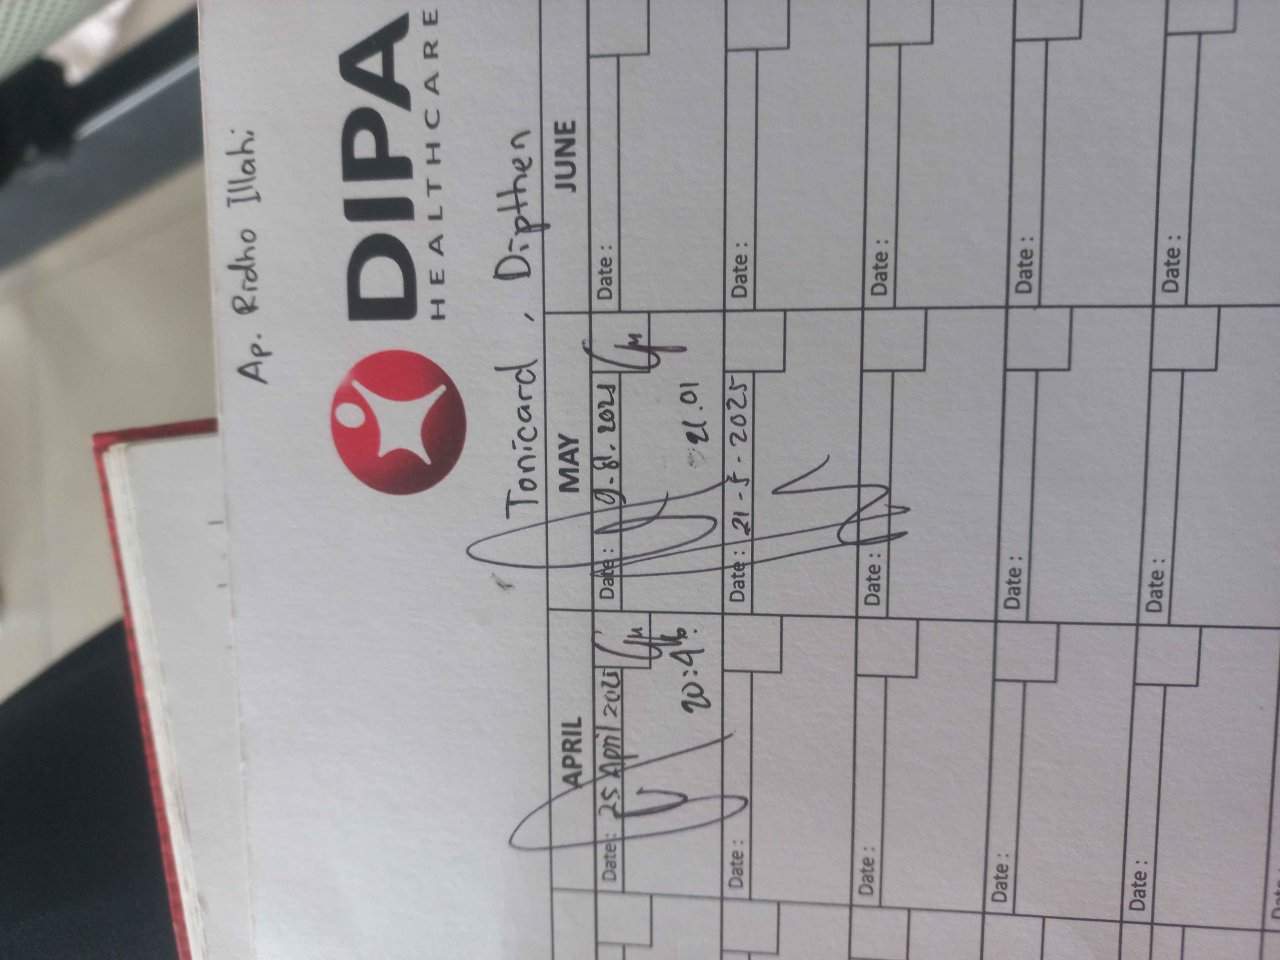 Ap. Ridho Illahi
DIPA
HEALTHCARE
Tonicard, Dipthen
APRIL
MAY
JUNE
Date: 25 April 2025
20:46
Date:
21.01
Date:
Date:
Date: 21-5-2025
Date:
Date:
Date:
Date:
Date:
Date:
Date:
Date:
Date:
Date: